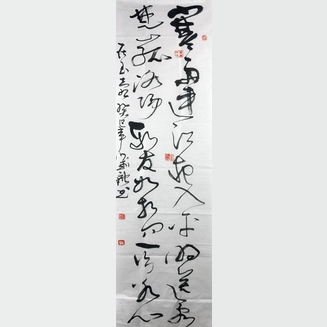 寒雨連江夜入吳平明送客
楚山孤洛陽親友如相問一片冰心
在玉壺癸巳年